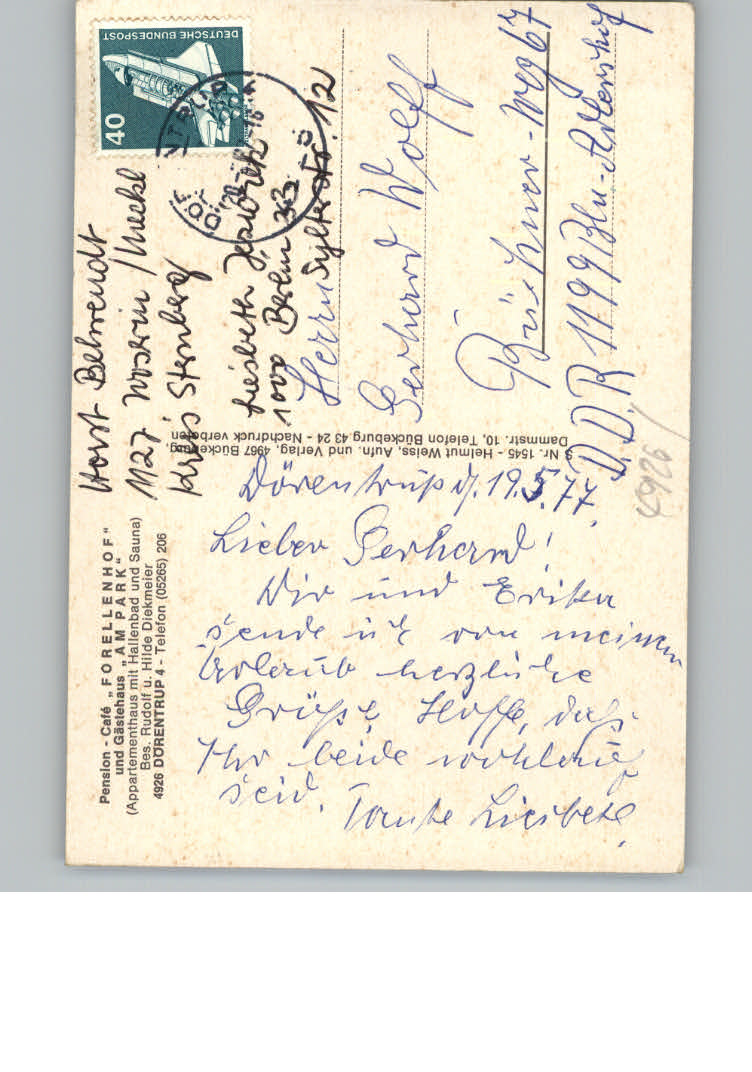 Pension - Café „FORELLENHOF“
und Gästehaus „AM PARK“
(Appartementhaus mit Hallenbad und Sauna)
Bes. Rudolf u. Hilde Diekmeier
4926 DÖRENTRUP 4 - Telefon (05265) 206
Dörentrup d. 19.5.77.
Lieber Gerhard!
Dir und Erika
sende ich von meinem
Urlaub herzliche
Grüße, Hoffe, daß
Ihr beide wohlauf
seid.
Tante Liesbeth.
S Nr. 1545 - Helmut Weiss, Aufn. und Verlag, 4967 Bückeburg,
Dammstr. 10, Telefon Bückeburg 43 24 - Nachdruck verboten
DEUTSCHE BUNDESPOST
40
Horst Behrendt
1127 Woserin / Meckl
Kreis Sternberg
Liesbeth
1000 Berlin 33
Sylterstr. 12
Herrn
Gerhard Wolff
Büchner-Weg 67
D.D.R 1199 Bln-Adlershof
4926